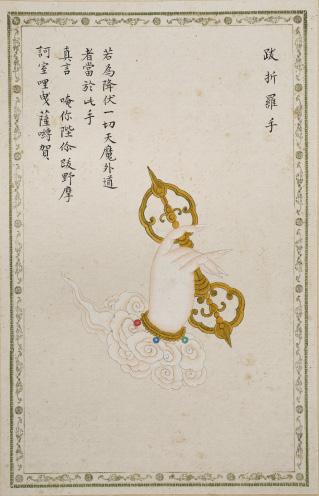 跋折羅手
若為降伏一切天魔外道
者當於此手
真言　唵你陛伱跋野摩
訶室哩曳薩嚩賀